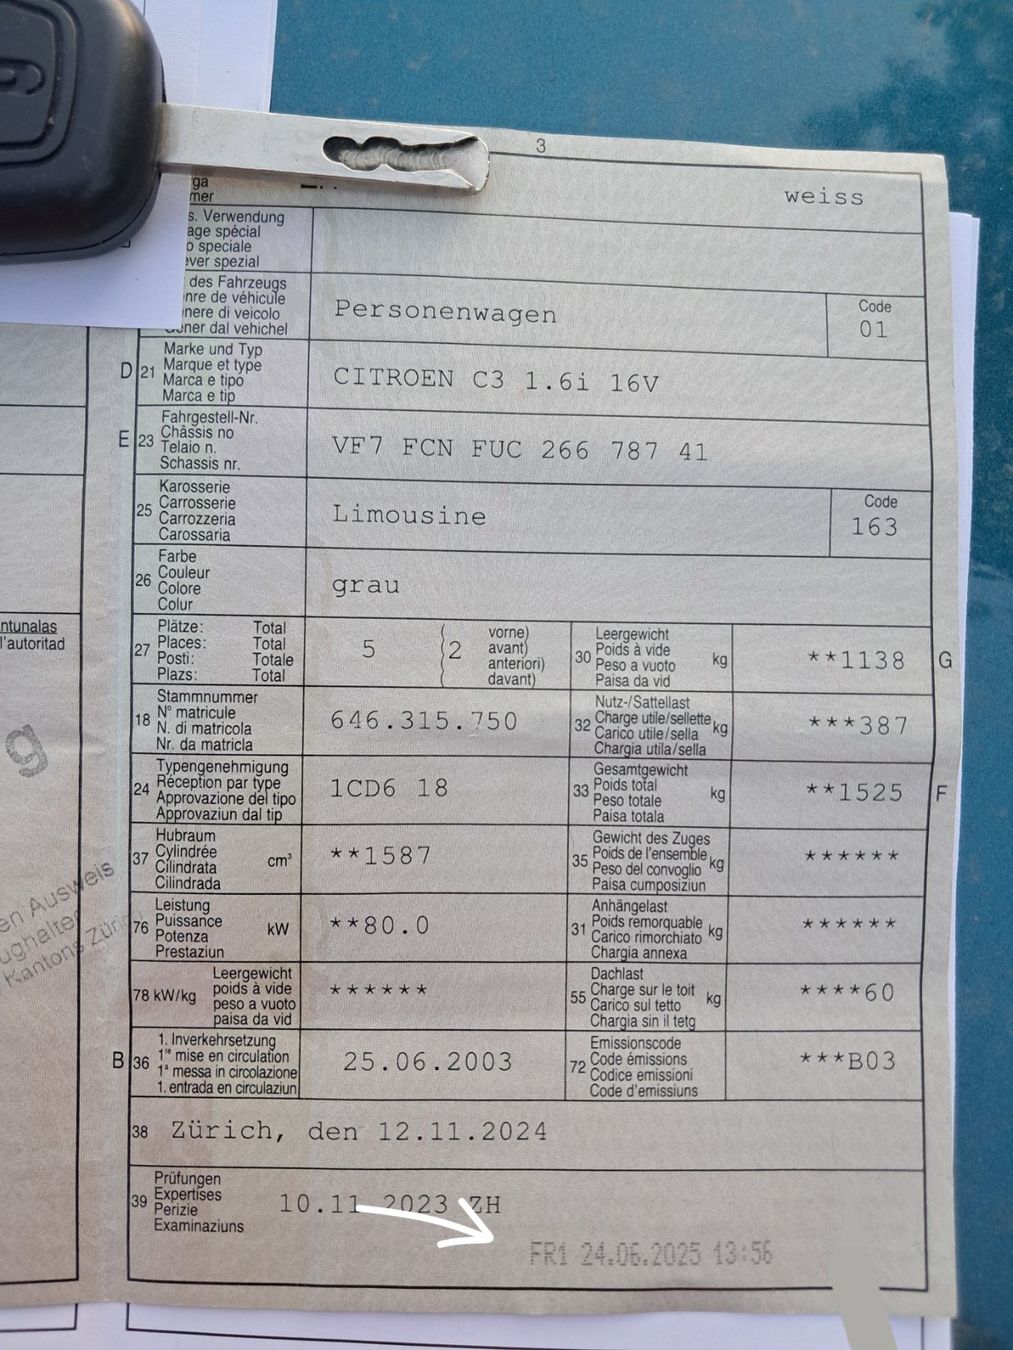 3
rga
mer
weiss
s. Verwendung
age spécial
o speciale
ever spezial
des Fahrzeugs
nre de véhicule
nere di veicolo
Gener dal vehichel
Personenwagen
Code
01
D 21 Marke und Typ
Marque et type
Marca e tipo
Marca e tip
CITROEN C3 1.6i 16V
E 23 Fahrgestell-Nr.
Châssis no
Telaio n.
Schassis nr.
VF7 FCN FUC 266 787 41
25 Karosserie
Carrosserie
Carrozzeria
Carossaria
Limousine
Code
163
26 Farbe
Couleur
Colore
Colur
grau
27 Plätze: Total
Places: Total
Posti: Totale
Plazs: Total
5 (2 vorne)
avant)
anteriori)
davant)
30 Leergewicht
Poids à vide
Peso a vuoto
Paisa da vid
kg
**1138 G
18 Stammnummer
N° matricule
N. di matricola
Nr. da matricla
646.315.750
32 Nutz-/Sattellast
Charge utile/sellette
Carico utile/sella
Chargia utila/sella
kg
***387
24 Typengenehmigung
Réception par type
Approvazione del tipo
Approvaziun dal tip
1CD6 18
33 Gesamtgewicht
Poids total
Peso totale
Paisa totala
kg
**1525 F
37 Hubraum
Cylindrée
Cilindrata
Cilindrada
cm³
**1587
35 Gewicht des Zuges
Poids de l'ensemble
Peso del convoglio
Paisa cumposiziun
kg
******
76 Leistung
Puissance
Potenza
Prestaziun
kW
**80.0
31 Anhängelast
Poids remorquable
Carico rimorchiato
Chargia annexa
kg
******
78 kW/kg Leergewicht
poids à vide
peso a vuoto
paisa da vid
******
55 Dachlast
Charge sur le toit
Carico sul tetto
Chargia sin il tetg
kg
****60
B 36 1. Inverkehrsetzung
1re mise en circulation
1a messa in circolazione
1. entrada en circulaziun
25.06.2003
72 Emissionscode
Code émissions
Codice emissioni
Code d'emissiuns
***B03
38 Zürich, den 12.11.2024
39 Prüfungen
Expertises
Perizie
Examinaziuns
10.11 2023 ZH
FR1 24.06.2025 13:56
ntunalas
l'autoritad
g
en Ausweis
ughalter
Kantons Zürich